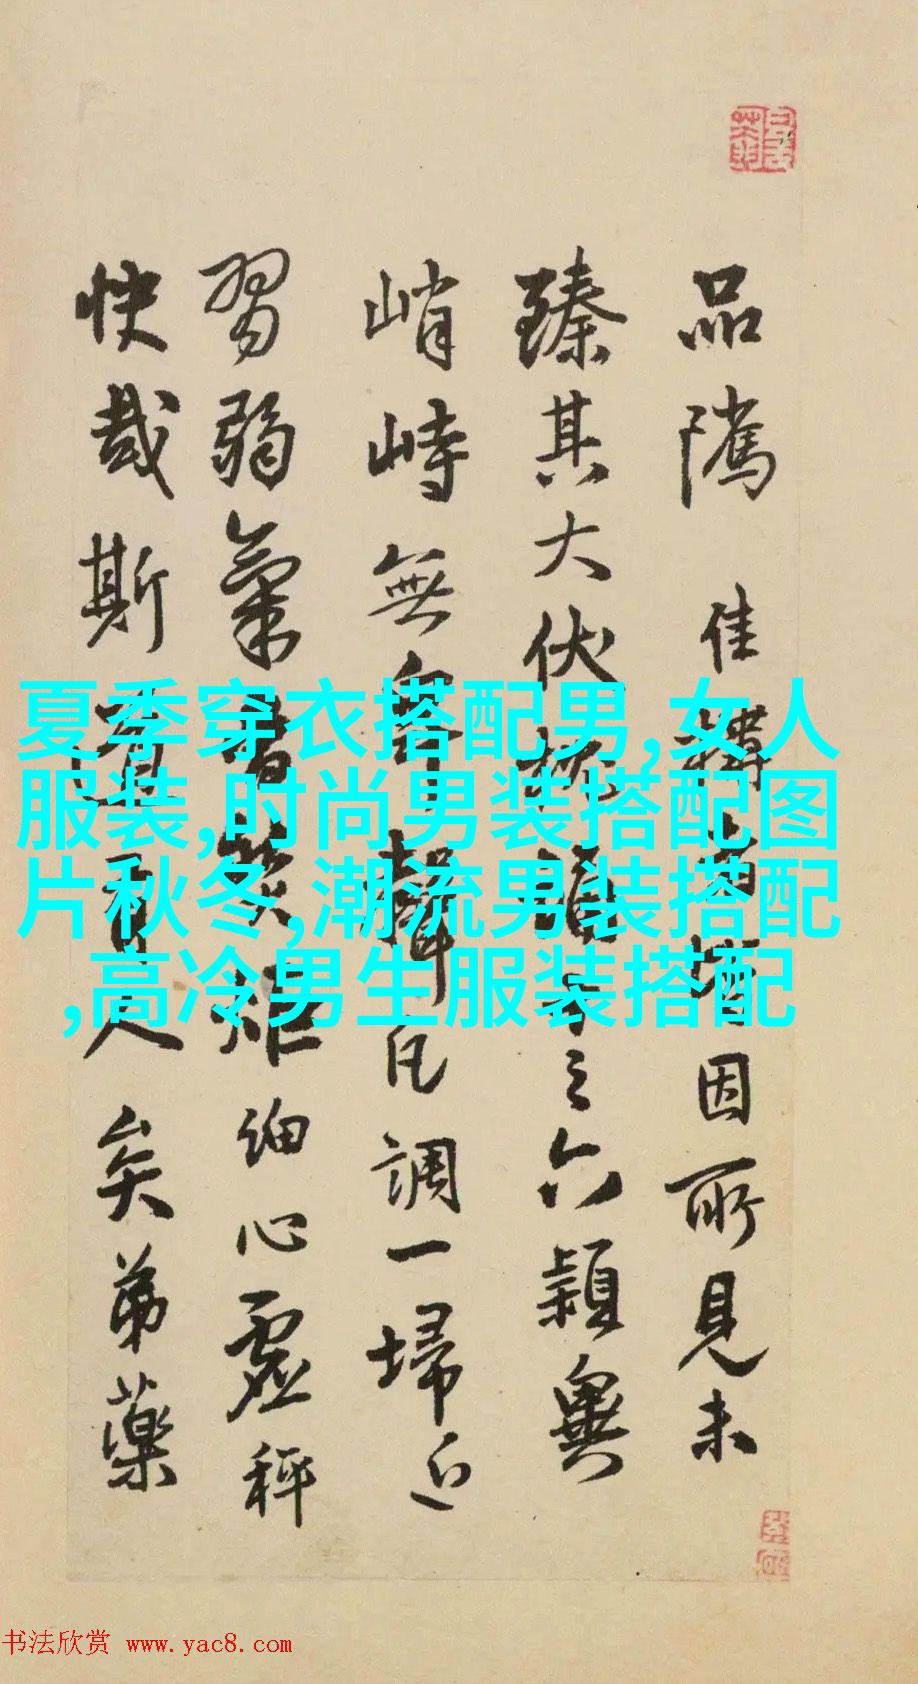 品隲佳因所見未
臻其大伏之六穎
峭峙無聲凡調一埽近
習弱氣炬細心虛秤
快哉斯人矣弟藥
夏季穿衣搭配男,女人
服装,时尚男装搭配图
片秋冬,潮流男装搭配
,高冷男生服装搭配
书法欣赏 www.yac8.com